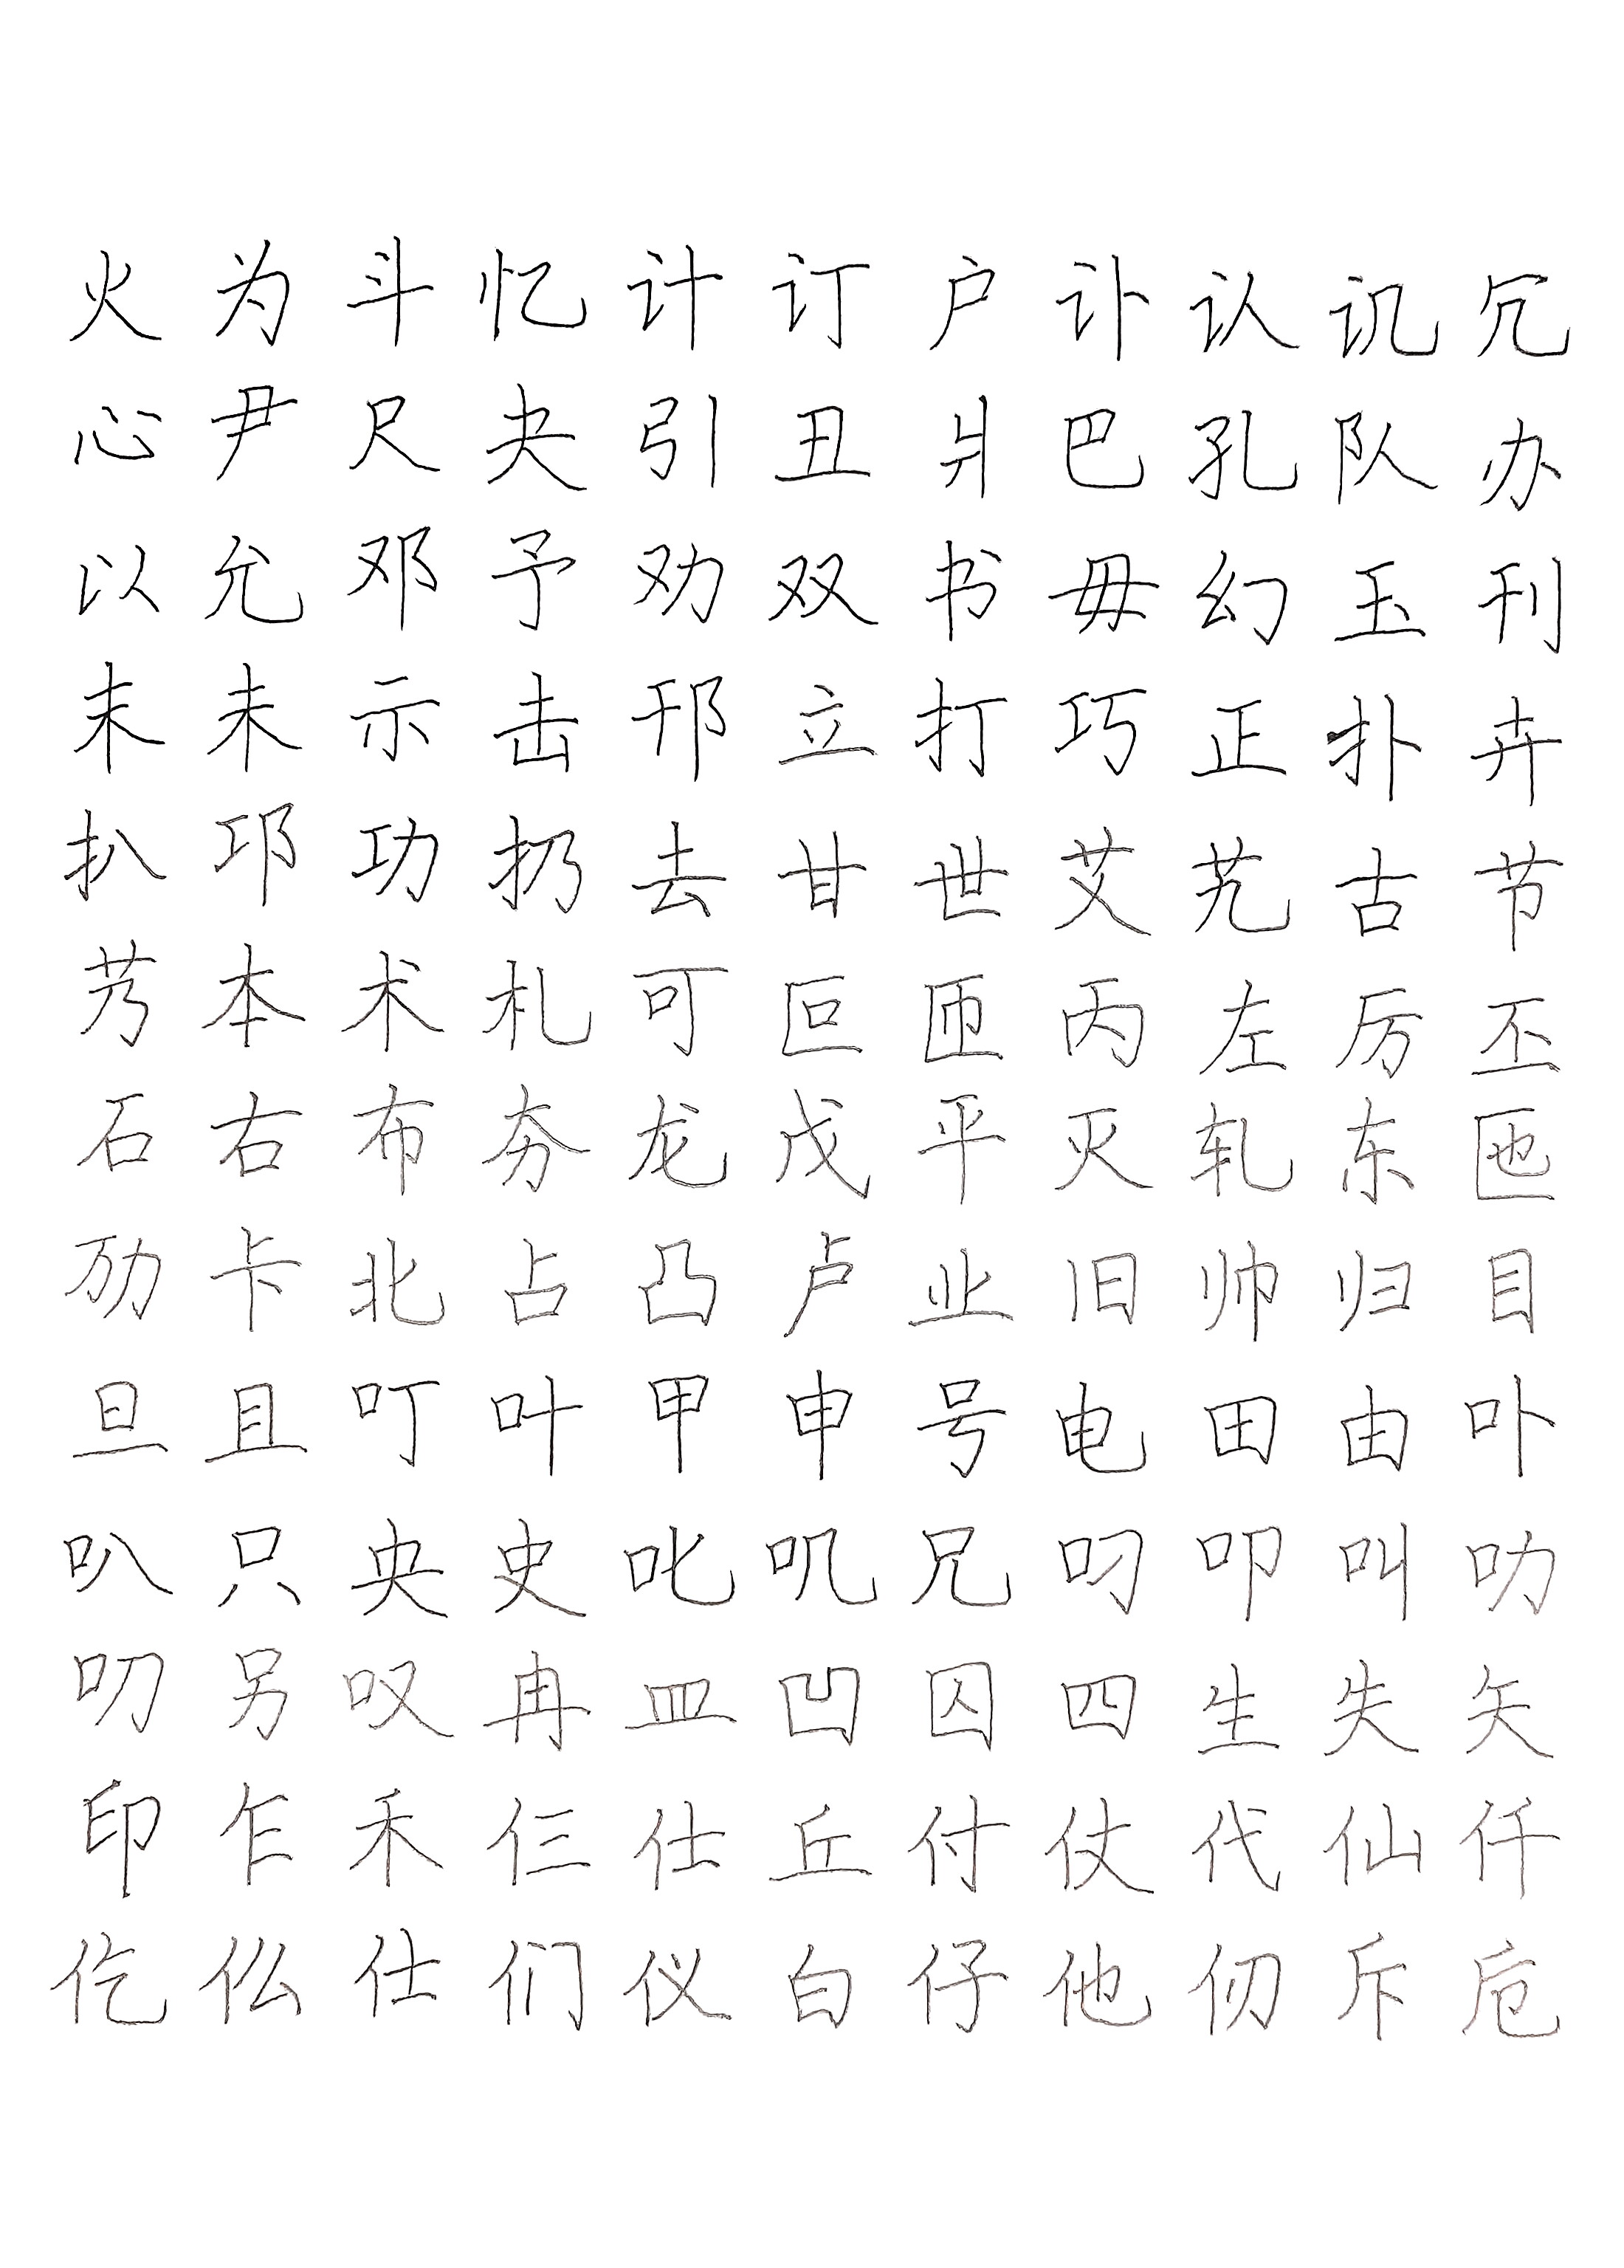 火为斗忆计订户讣认讥冗
心尹尺夬引丑爿巴孔队办
以允邓予劝双书毋幻玉刊
末未示击邘立打巧正扑卉
扒邛功扔去甘世艾艽古节
艿本术札可叵匝丙左厉丕
石右布夯龙戊平灭轧东匜
劢卡北占凸卢业旧帅归目
旦且叮叶甲申号电田由卟
叭只央史叱叽兄叼叩叫叻
叨另叹冉皿凹囚四生失矢
印乍禾仨仕丘付仗代仙仟
仡仫仕们仪白仔他仞斥卮